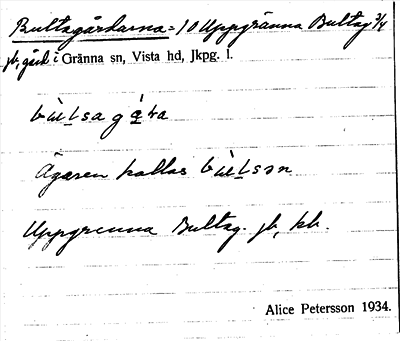 Bultsgårdarna = 10 Uppgränna Bultsg 3/4
jb, gård i Gränna sn, Vista hd, Jkpg. l.
Ägaren kallas
Uppgrenna Bultsg. jb, kb.
Alice Petersson 1934.